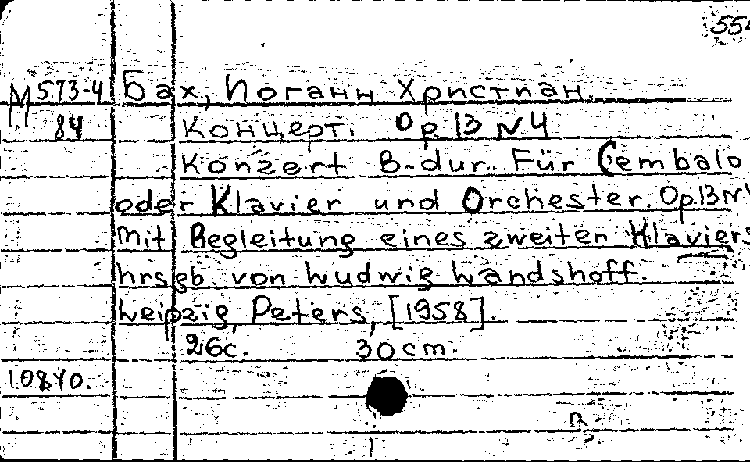 М 573-4 Бах, Иоганн Христиан.
84 Концерт. Op 13 N 4
Konzert B-dur. Für Cembalo
oder Klavier und Orchester. Op.13 N
mit Begleitung eines zweiten Klaviers
hrsgb von Ludwig Landshoff.
Leipzig, Peters, [1958].
26c. 30 cm.